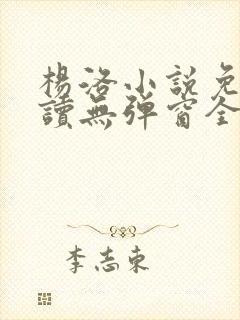 楊洛小說免
讀無彈窗全
李志東